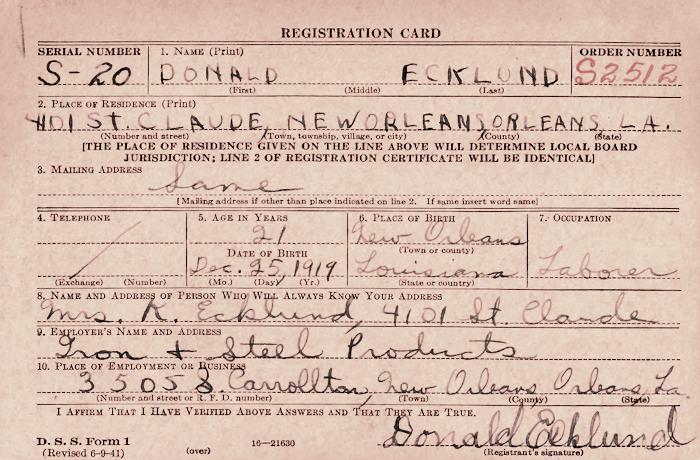 REGISTRATION CARD
SERIAL NUMBER 1. NAME (Print) ORDER NUMBER
S-20 DONALD ECKLUND S2512
(First) (Middle) (Last)
2. PLACE OF RESIDENCE (Print)
4101 ST. CLAUDE, NEW ORLEANS ORLEANS, LA.
(Number and street) (Town, township, village, or city) (County) (State)
[THE PLACE OF RESIDENCE GIVEN ON THE LINE ABOVE WILL DETERMINE LOCAL BOARD
JURISDICTION; LINE 2 OF REGISTRATION CERTIFICATE WILL BE IDENTICAL]
3. MAILING ADDRESS
Same
[Mailing address if other than place indicated on line 2. If same insert word same]
4. TELEPHONE 5. AGE IN YEARS 6. PLACE OF BIRTH 7. OCCUPATION
21 New Orleans
(Town or county)
DATE OF BIRTH
Dec. 25, 1919 Louisiana Laborer
(Exchange) (Number) (Mo.) (Day) (Yr.) (State or country)
8. NAME AND ADDRESS OF PERSON WHO WILL ALWAYS KNOW YOUR ADDRESS
Mrs. K. Ecklund, 4101 St. Claude
9. EMPLOYER'S NAME AND ADDRESS
Iron + Steel Products
10. PLACE OF EMPLOYMENT OR BUSINESS
3505 S. Carrollton, New Orleans, Orleans, La.
(Number and street or R. F. D. number) (Town) (County) (State)
I AFFIRM THAT I HAVE VERIFIED ABOVE ANSWERS AND THAT THEY ARE TRUE.
Donald Ecklund
D. S. S. Form 1
(Revised 6-9-41) (over) 16—21630 (Registrant's signature)